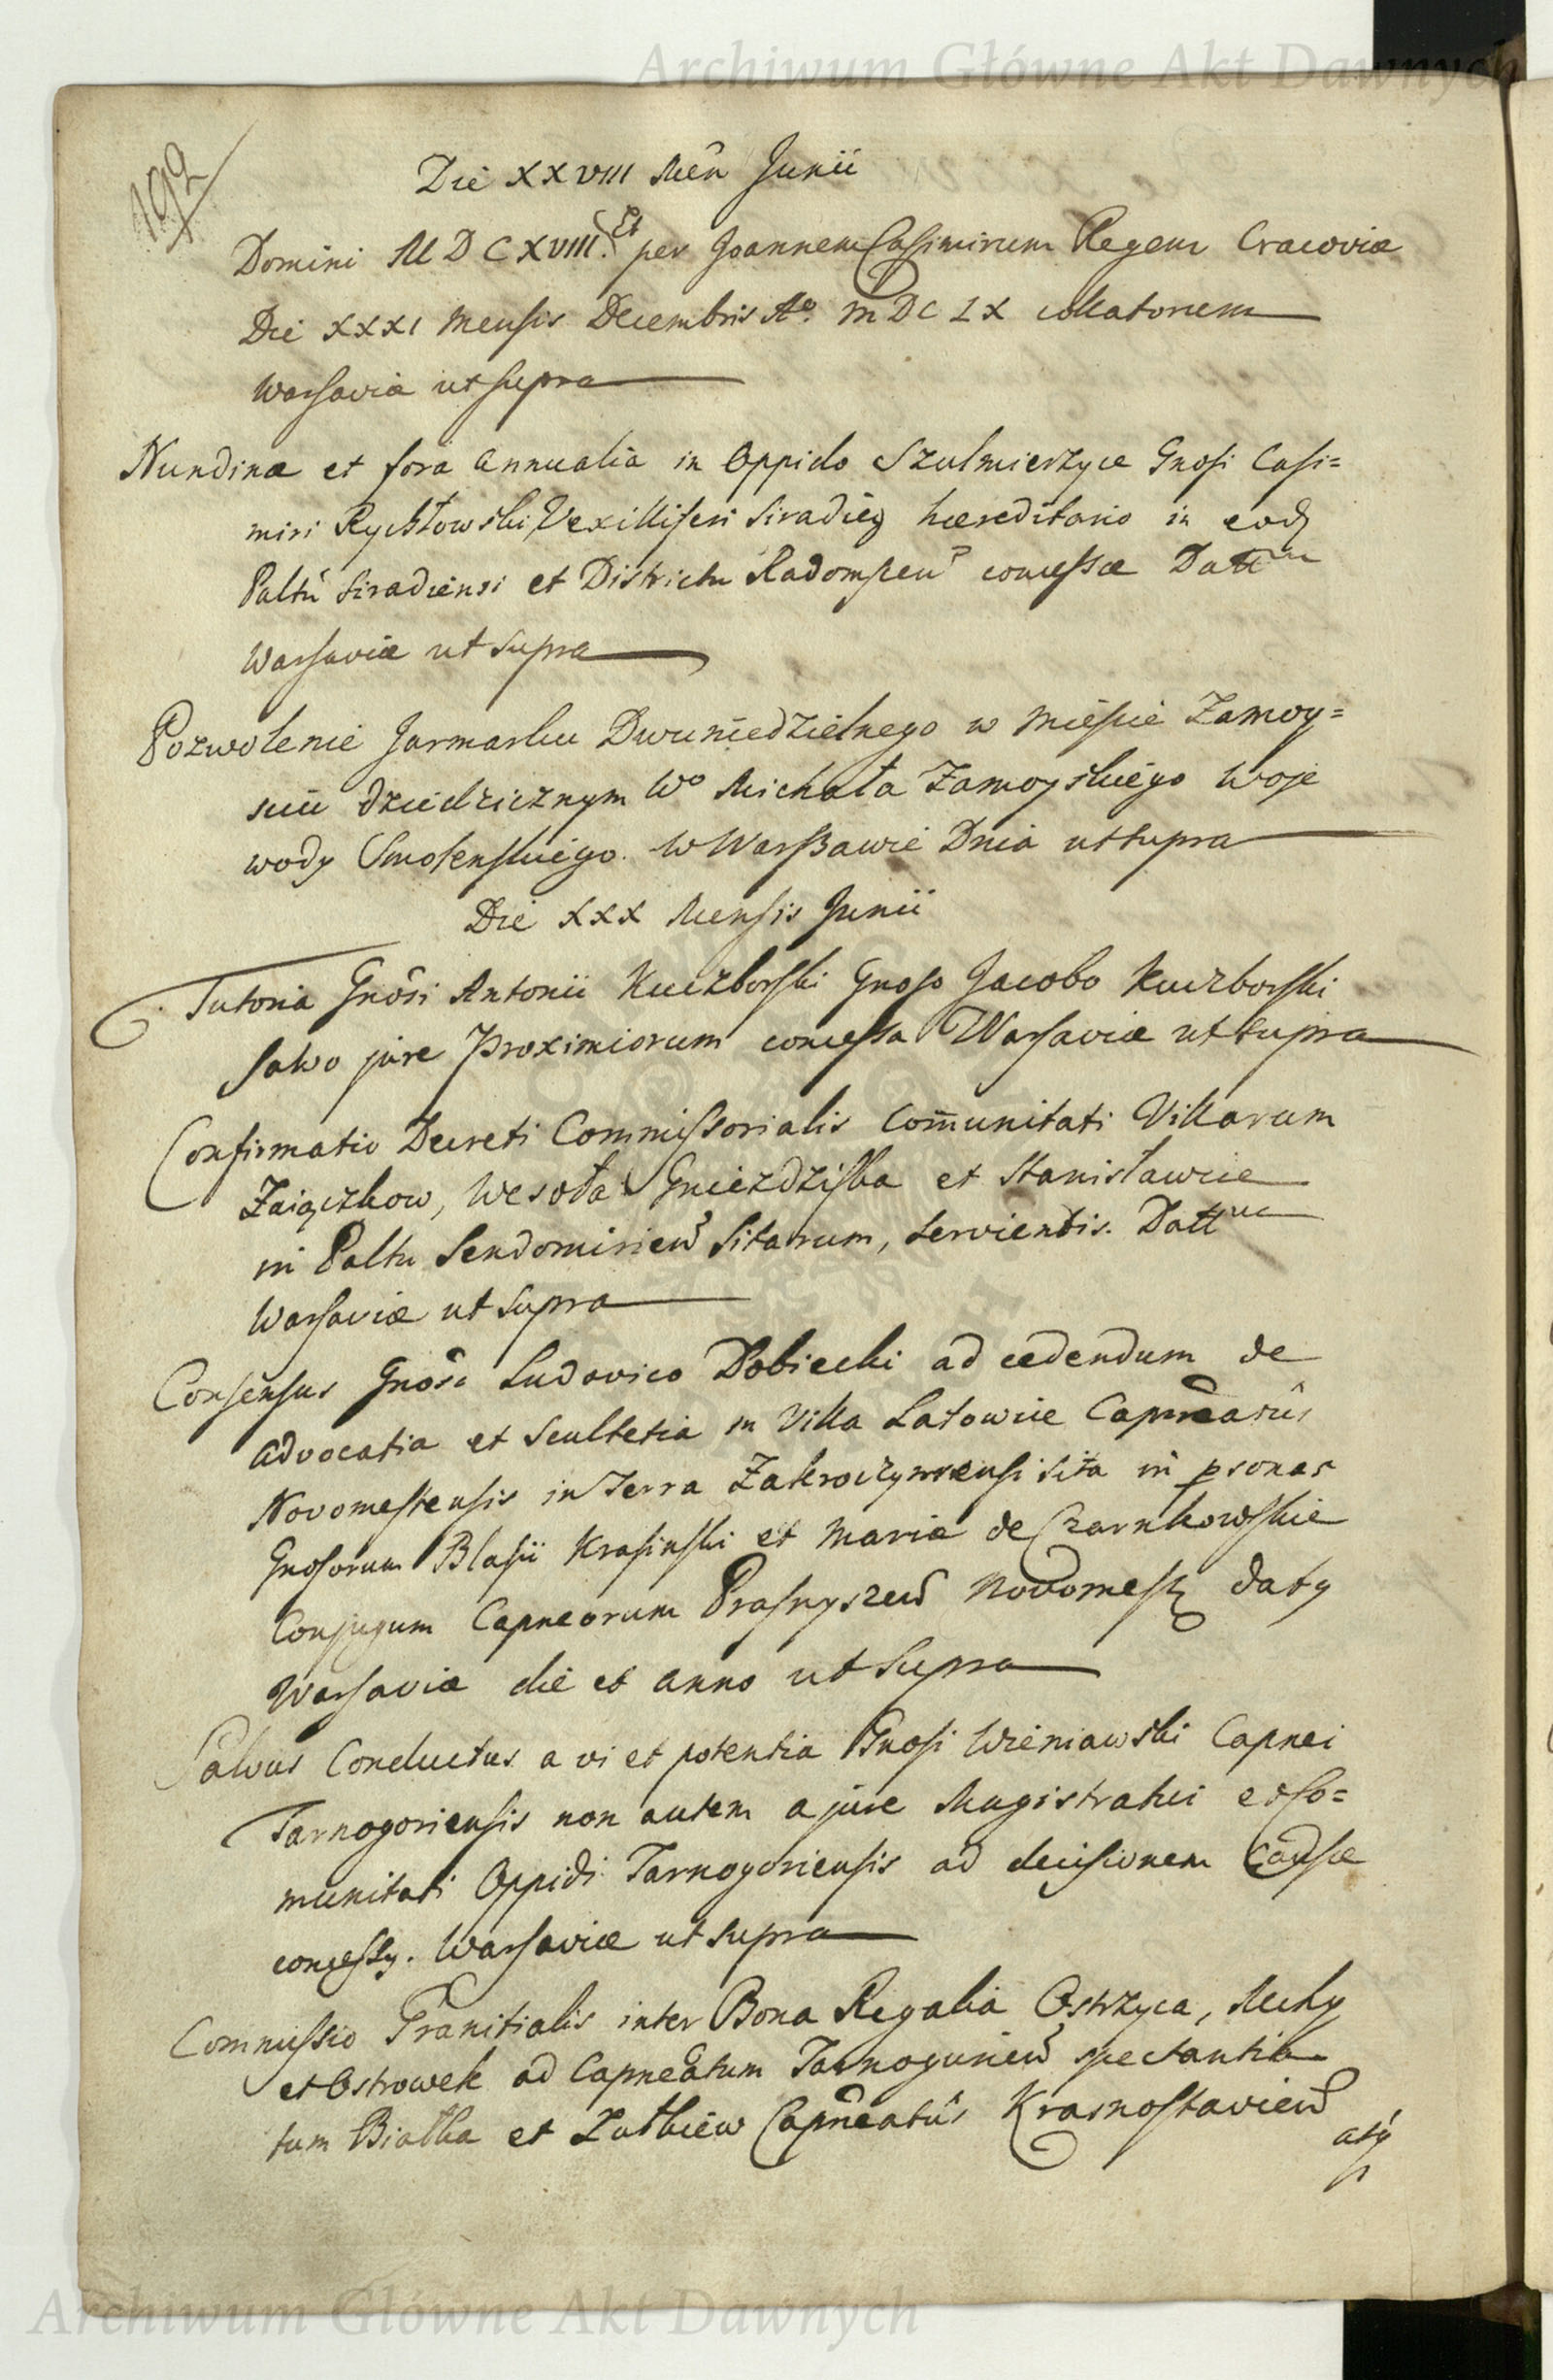 Archiwum Główne Akt Dawnych
192
Die XXVIII Men Junii
Domini MDCXVIII. Et per Joannem Casimirum Regem Cracoviæ
Die XXXI Mensis Decembris Ao. MDCLX collationem
Warsaviæ ut supra
Nundinæ et fora annualia in Oppido Szulmierzyce Gnosi Casi=
miri Rychłowski Vexilliferi Siradieñ hæreditario in eod
Paltu Siradiensi et Districtu Radomsien concessæ Datt
Warsaviæ ut supra
Pozwolenie Jarmarku Dwuniedzielnego w Mieście Zamoy=
sciu dziedzicznym Wo Michała Zamoyskiego Woje
wody Smolenskiego. w Warszawie Dnia ut supra
Die XXX Mensis Junii
Tutoria Gnosi Antonii Kuczborski Gnoso Jacobo Kuczborski
salvo jure Proximiorum concessa Warsaviæ ut supra
Confirmatio Decreti Commissorialis Com̄unitati Villarum
Zaiączkow, Wesoła Gniezdziska et Stanisławice
in Paltu Sendomirien Sitarum, servientis. Datt
Warsaviæ ut supra
Consensus Gnoso Ludovico Dobiecki ad cedendum de
advocatia et Scultetia in Villa Latowice Capneatus
Novomestensis in Terra Zakroczymensi sita in psonas
Gnosorum Blasii Krasinski et Mariæ de Czarnkowskie
Conjugum Capneorum Prasnyszen Novomest daty
Warsaviæ die et anno ut supra
Salvus Conductus a vi et potentia Gnosi Wieniawski Capnei
Tarnogoriensis non autem a jure Magistratui et Co=
munitati Oppidi Tarnogoriensis ad decisionem Causæ
concessy. Warsaviæ ut supra
Commissio Granitialis inter Bona Regalia Ostrzyca, Mchy
et Ostrowek ad Capneatum Tarnogorien spectantia
tum Białka et Łatkiew Capneatus Krasnostavien
aty
Archiwum Główne Akt Dawnych